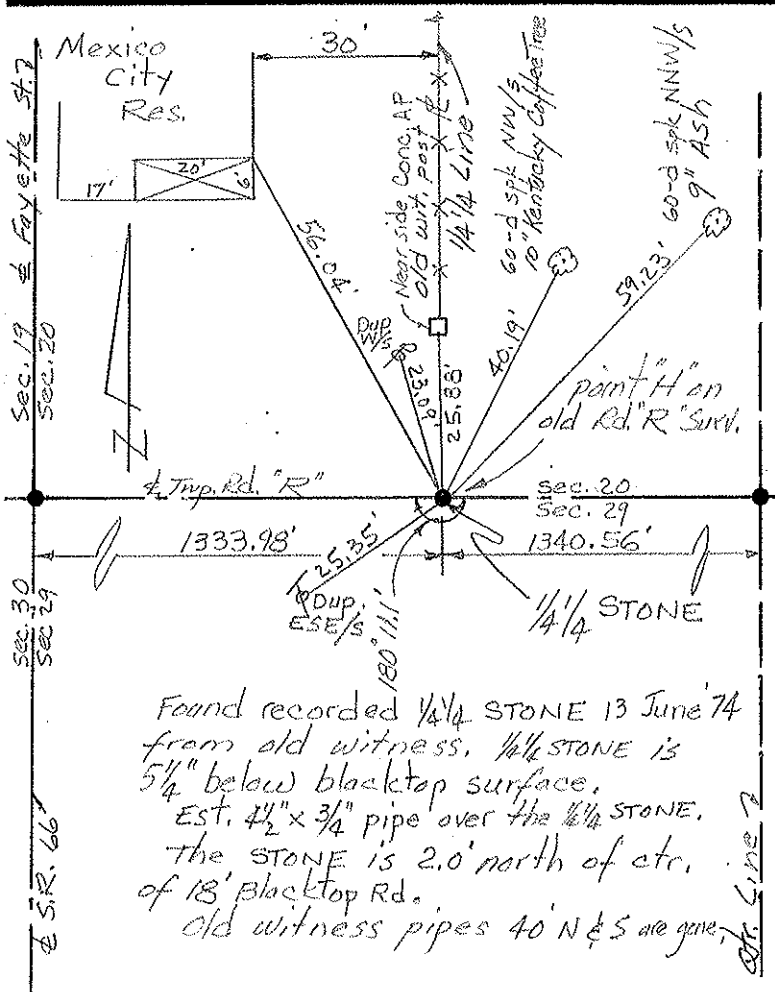 Mexico
City
Res.
30'
20'
6'
17'
℄ Fayette St.
Sec. 19
Sec. 20
N
56.04'
Near side Conc. AP
old wit. post
℄
1/4 1/4 Line
60-d spk NW/s
10" Kentucky Coffee Tree
60-d spk NNW/s
9" ASH
Dup
W/s
23.09'
25.88'
40.19'
59.23'
point "H" on
old Rd. "R" Surv.
℄ Twp. Rd. "R"
Sec. 20
Sec. 29
1333.98'
1340.56'
25.35'
Dup.
ESE/s
180° 11.1'
1/4 1/4 STONE
Sec. 30
Sec 29
Found recorded 1/4 1/4 STONE 13 June '74
from old witness. 1/4 1/4 STONE is
5 1/4" below blacktop surface.
Est. 4 1/2" x 3/4" pipe over the 1/4 1/4 STONE.
The STONE is 2.0' north of ctr.
of 18' Blacktop Rd.
Old witness pipes 40' N & S are gone.
℄ S.R. 66
Qtr. Line